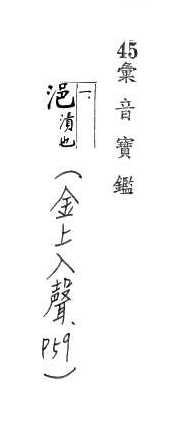 45彙音寶鑑
一
浥漬也
(金上入聲、P59)